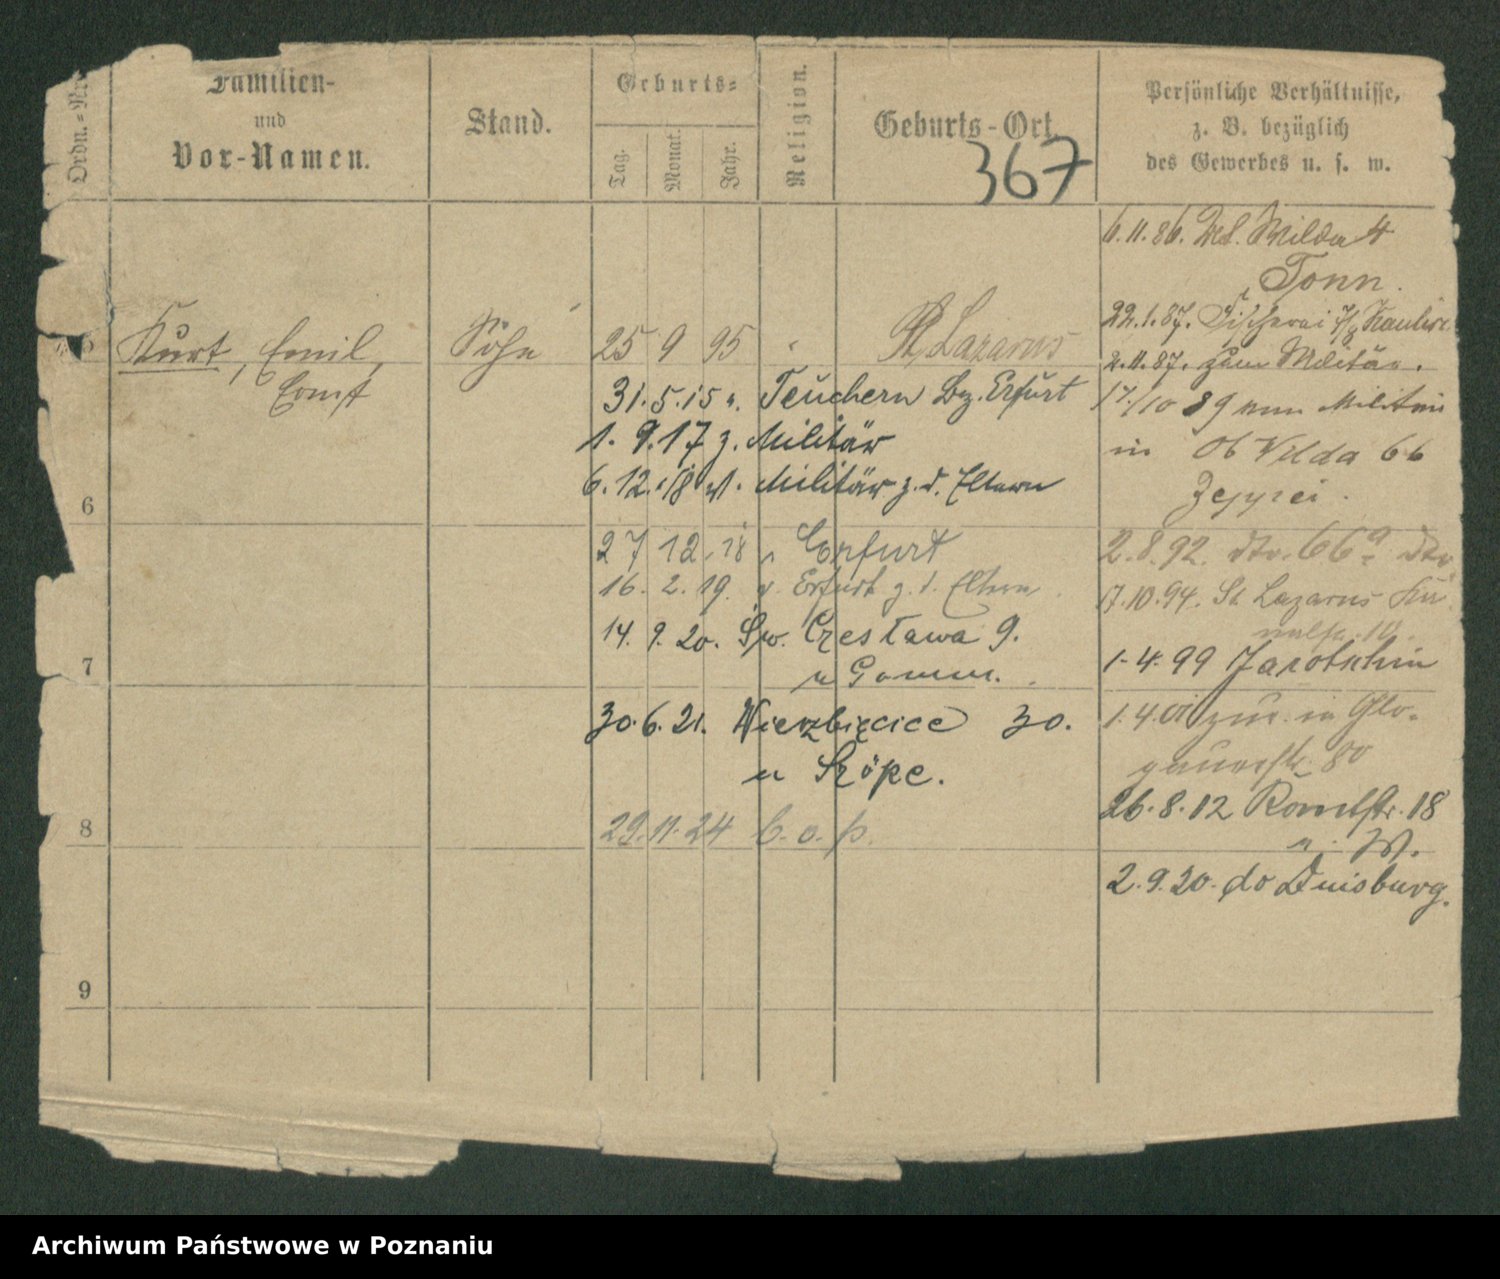 Ordn.-Nr.
Familien-
und
Vor-Namen.
Stand.
Geburts-
Tag.
Monat.
Jahr.
Religion.
Geburts-Ort.
367
Persönliche Verhältnisse,
z. B. bezüglich
des Gewerbes u. s. w.
5 Kurt, Emil, Sohn 25 9 95 St. Lazarus
Ernst
31. 5. 15 n. Teuchern Bz. Erfurt
1. 9. 17 z. Militär
6. 12. 18 v. Militär z. d. Eltern
6
27 12. 18 n Erfurt
16. 2. 19. v. Erfurt z. d. Eltern
14. 9. 20. Św. Czesława 9.
u Gomm.
7
30. 6. 21. Wierzbięcice 30.
u Szöpe.
8
29. 11. 24 b. o. p.
9
6. 11. 86. Wilda 4
Tonn.
22. 1. 87. Fischerei
2. 11. 87. zum Militär.
17/10 89 vom Militär
in Ob Wilda 66
2. 8. 92. dto. 66a dto
17. 10. 94. St. Lazarus
1. 4. 99 Jarotschin
1. 4. 01 zur. in Glo-
gauerstr. 80
26. 8. 12 18
u. W.
2. 9. 20. do Duisburg.
Archiwum Państwowe w Poznaniu